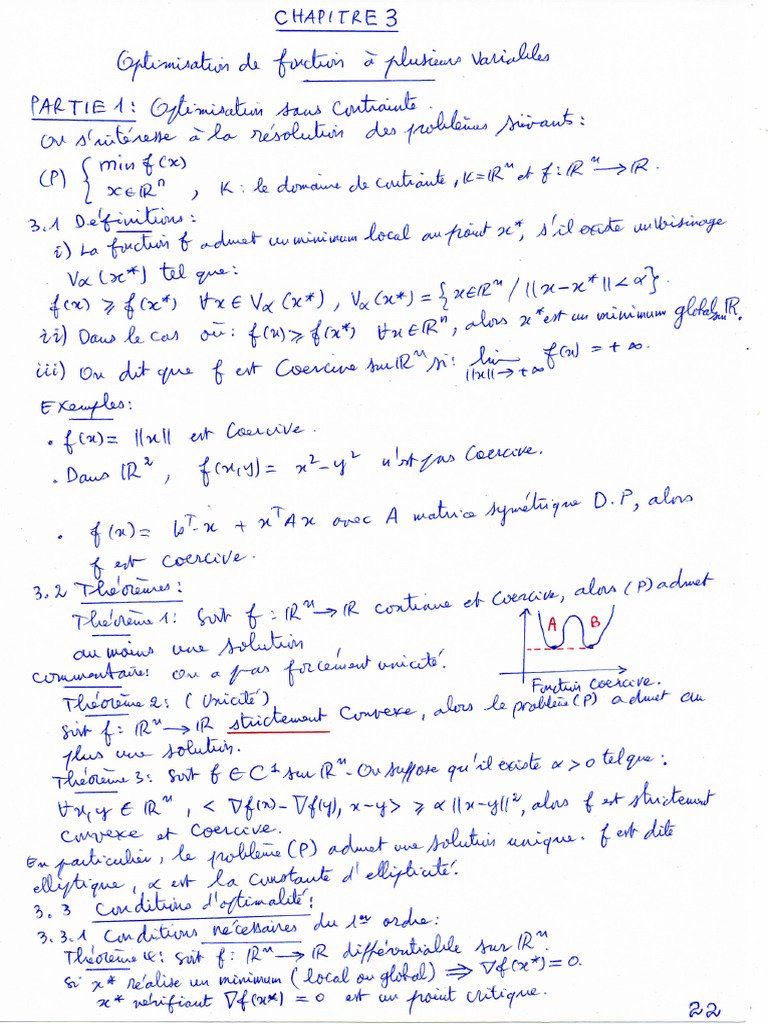 CHAPITRE 3
Optimisation de fonction à plusieurs variables
PARTIE 1: Optimisation sans contrainte.
On s'intéresse à la résolution des problèmes suivants:
(P) { min f(x)
x∈ℝⁿ , K: le domaine de contrainte, K=ℝⁿ et f: ℝⁿ → ℝ.
3.1 Définitions:
i) La fonction f admet un minimum local au point x*, s'il existe un voisinage
Vα(x*) tel que:
f(x) ⩾ f(x*) ∀x∈Vα(x*), Vα(x*) = {x∈ℝⁿ / ||x-x*|| < α}.
ii) Dans le cas où: f(x) ⩾ f(x*) ∀x∈ℝⁿ, alors x* est un minimum global sur ℝ.
iii) On dit que f est Coercive sur ℝⁿ si: lim f(x) = +∞.
||x||→+∞
Exemples:
• f(x) = ||x|| est Coercive.
• Dans ℝ², f(x,y) = x²-y² n'est pas Coercive.
• f(x) = bᵀx + xᵀAx avec A matrice symétrique D.P, alors
f est coercive.
3.2 Théorèmes:
Théorème 1: Soit f: ℝⁿ→ℝ continue et Coercive, alors (P) admet
au moins une solution
A B
Commentaire: on a pas forcément unicité.
Fonction coercive.
Théorème 2: (Unicité)
Soit f: ℝⁿ → ℝ strictement Convexe, alors le problème (P) admet au
plus une solution.
Théorème 3: Soit f ∈ C¹ sur ℝⁿ. On suppose qu'il existe α>0 tel que:
∀x,y ∈ ℝⁿ, <∇f(x)-∇f(y), x-y> ⩾ α||x-y||², alors f est strictement
Convexe et Coercive.
En particulier, le problème (P) admet une solution unique. f est dite
elliptique, α est la constante d'ellipticité.
3.3 Conditions d'optimalité:
3.3.1 Conditions nécessaires du 1er ordre:
Théorème 4: Soit f: ℝⁿ → ℝ différentiable sur ℝⁿ.
Si x* réalise un minimum (local ou global) ⟹ ∇f(x*)=0.
x* vérifiant ∇f(x*) = 0 est un point critique.
22